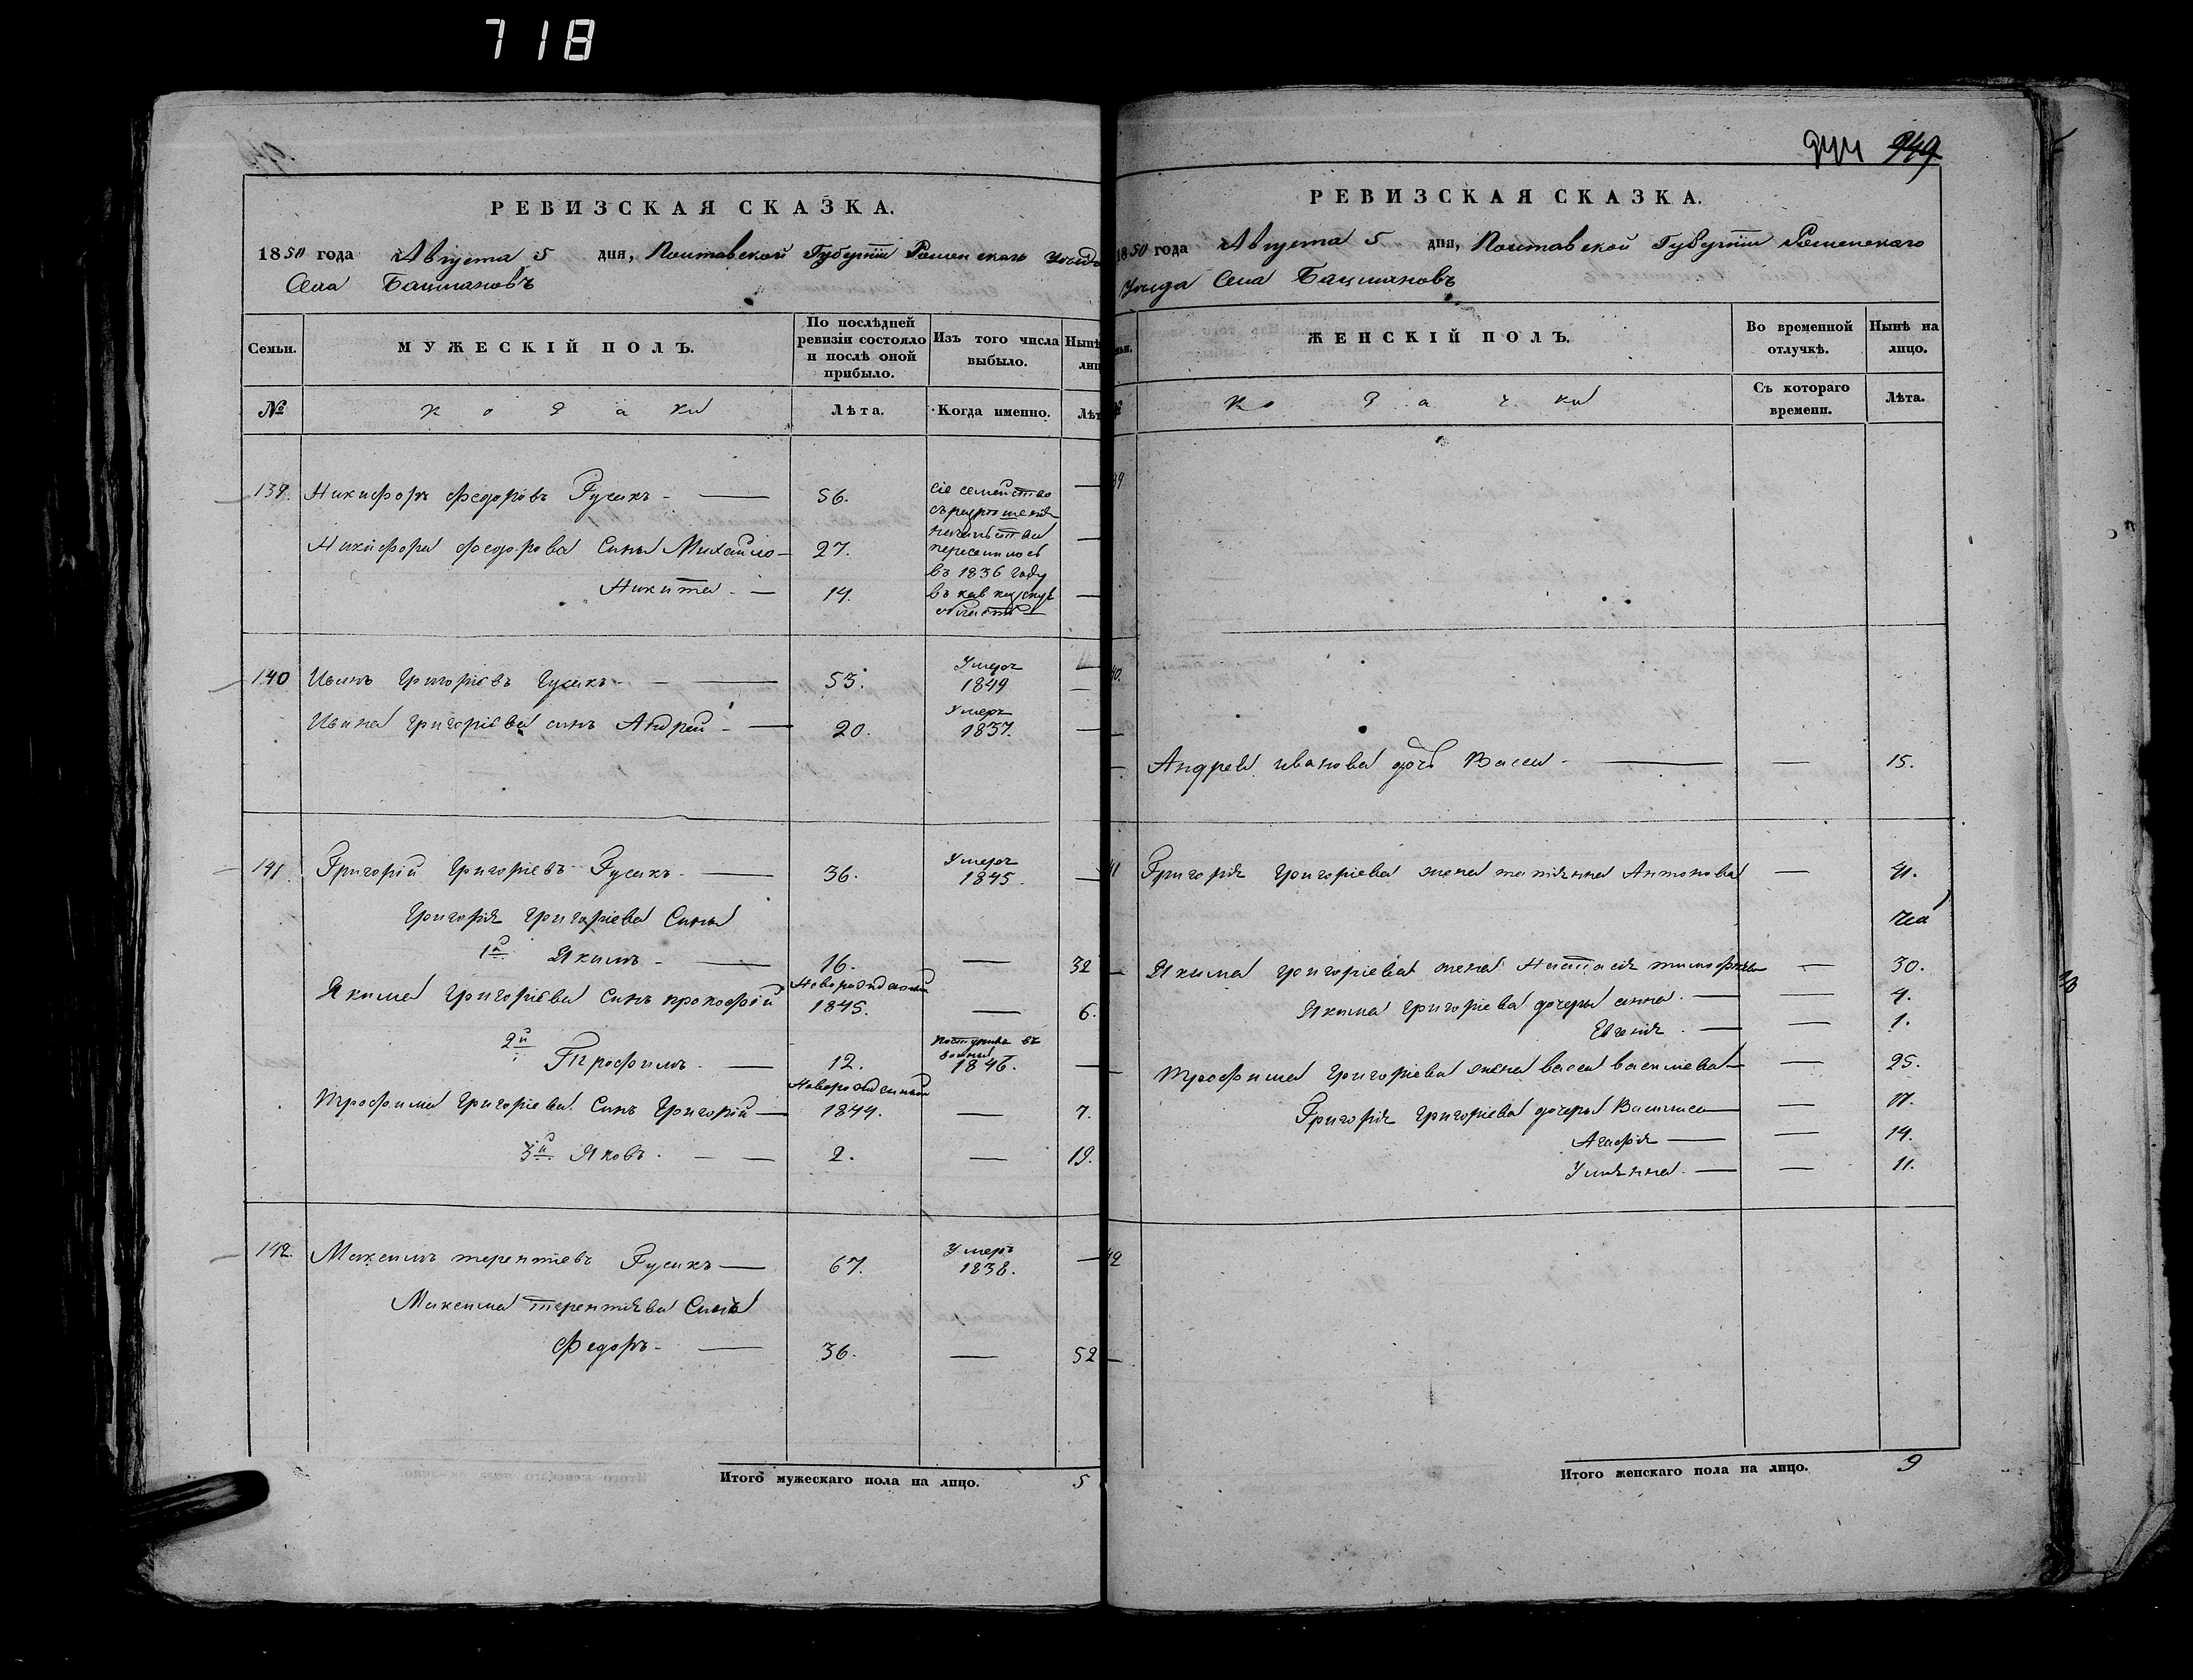 718
949
РЕВИЗСКАЯ СКАЗКА.
1850 года Августа 5 дня, Полтавской Губерніи Роменскаго уезда
Села Бацмановъ
Семьи.
МУЖЕСКІЙ ПОЛЪ.
По послѣдней ревизіи состояло и послѣ оной прибыло.
Изъ того числа выбыло.
Нынѣ
№
Козаки
Лѣта.
Когда именно.
Лѣт
139. Никифоръ Федоровъ Гусакъ 56. Сіе семейство
съ разрешенія
начальства
Никифора Федорова Сины Михайло 27. переселилось
в 1836 году
Никита 14. въ кавказскую
область
140 Иванъ Григоріевъ Гусакъ 53. Умеръ 1849
Ивана Григоріева синъ Андрей 20. Умеръ 1837.
141. Григорій Григоріевъ Гусакъ 36. Умеръ 1845
Григорія Григоріева Сины
1й Якимъ 16. 32
Якима Григоріева Синъ прокофій Новорожденный 1845. 6.
2й Трофимъ 12. поступилъ въ 1846.
Трофима Григоріева Синъ Григорій Новорожденный 1844. 7.
3й Яковъ 2. 19.
142. Максимъ терентіевъ Гусакъ 67. Умеръ 1838.
Максима терентіева Синъ
Федоръ 36. 52
Итого мужескаго пола на лицо. 5
РЕВИЗСКАЯ СКАЗКА.
1850 года Августа 5 дня, Полтавской Губерніи Роменскаго
Уезда Села Бацмановъ
ЖЕНСКІЙ ПОЛЪ.
Во временной отлучкѣ.
Нынѣ на лицо.
Козачки
Съ котораго времени.
Лѣта.
39
40.
Андрея иванова дочь Васса 15.
41 Григорія Григоріева жена татіянна Антонова 41.
Якима григоріева жена Настасія тимофѣева 30.
Якима григоріева дочеры анна 4.
Евгенія 1.
трофима Григоріева жена васса василева 25.
Григорія Григоріева дочеры Василиса 17.
Агафія 14.
Уліянна 11.
42
Итого женскаго пола на лицо. 9